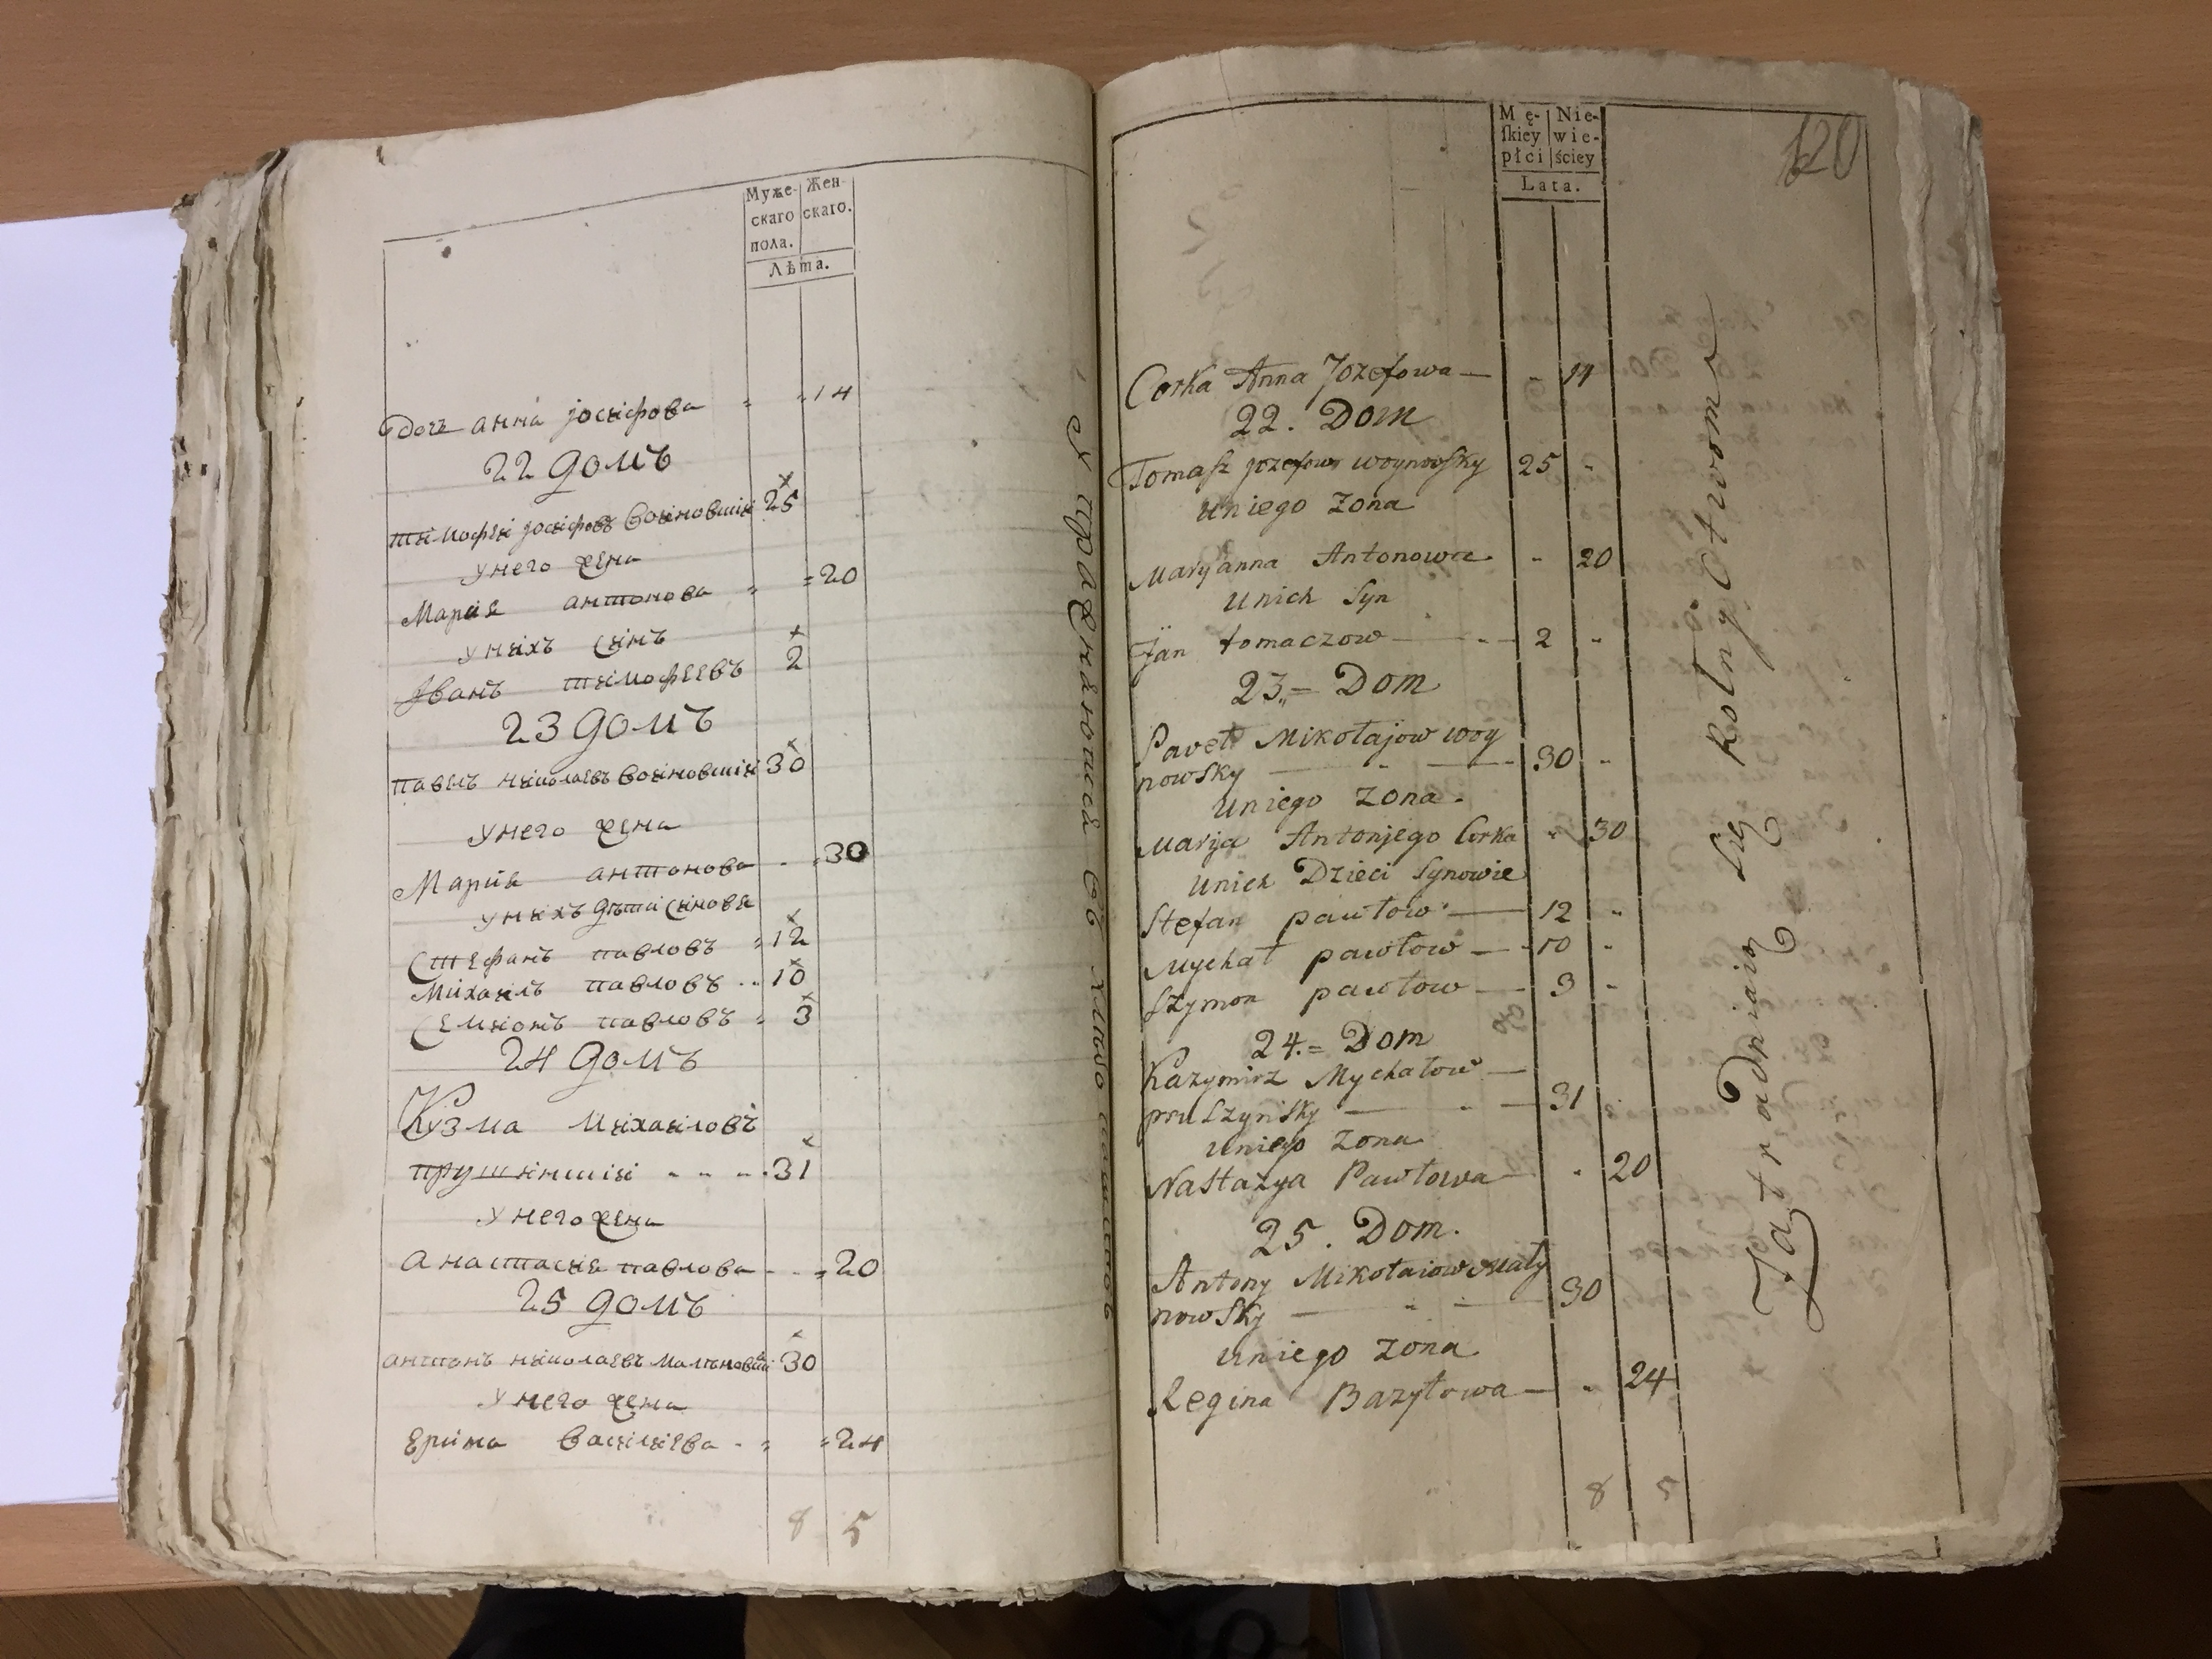 Муже-
скаго
пола.
Жен-
скаго.
Лѣта.
Дочь анна јосифова " " 14
22 домъ
тимофеи јосифовъ воиновшиі 25
у него жена
Мариѣ антонова " " 20
у нихъ синъ
јванъ тимофеевъ 2
23 домъ
павелъ николаевъ воиновшиі 30
у него жена
Мариѣ антонова " 30
у нихъ дѣти синовѣ
Стефанъ павловъ " 12
Михаилъ павловъ 10
Семионъ павловъ " 3
24 домъ
Кузма Михаиловъ
прушиншиі 31
у него жена
анастасиѣ павлова " 20
25 домъ
антонъ николаевъ малиновшиі 30
у него жена
Ерина василиева " " 24
8 5
Упражнѣютсѣ въ
Mę-
ſkiey
płci
Nie-
wie-
ściey
Lata.
120
Corka Anna Jozefowa — " 14
22. Dom
Tomasz Jozefow woynowsky 25 "
uniego zona
Maryanna Antonowa " 20
unich Syn
Jan tomaczow — 2 "
23. = Dom
Paweł Mikołajow woy
nowsky — 30 "
uniego zona
Marija Antonjego Corka " 30
unich Dzieci Synowie
Stefan pawłow — 12 "
Mychał pawłow — 10 "
Szymon pawłow — 3 "
24. = Dom
Kazymirz Mychałow —
pruszynsky — 31
uniego zona
Nastazya Pawłowa " 20
25. Dom.
Antony Mikołaiow maly
nowsky — 30
uniego zona
Regina Bazyłowa — " 24
8 5
Zatrudniaią się Rolnyctwom